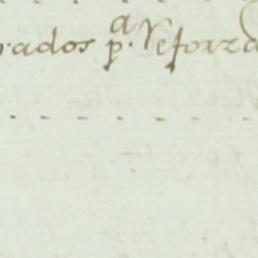 rados p.ª reforza